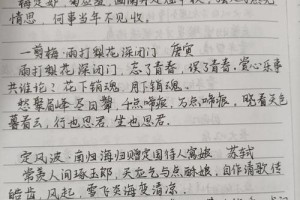 情思,何事当年不见收。
一剪梅·雨打梨花深闭门 唐寅
雨打梨花深闭门,忘了青春,误了青春。赏心乐事
共谁论?花下销魂,月下销魂。
愁聚眉峰尽日颦,千点啼痕,万点啼痕。晓看天色
暮看云,行也思君,坐也思君。
定风波·南海归赠定国侍人寓娘 苏轼
常羡人间琢玉郎,天应乞与点酥娘,自作清歌传
皓齿,风起,雪飞炎海变清凉。